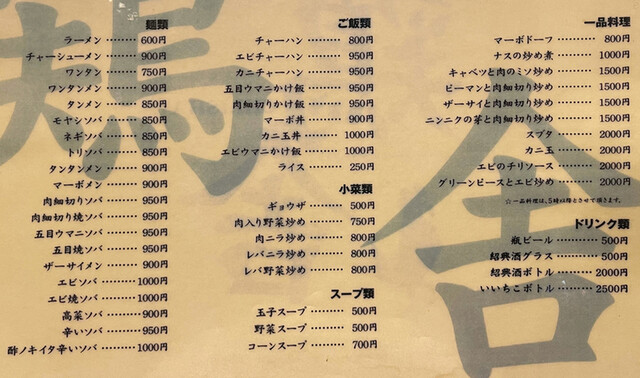 麺類
ラーメン ……… 600円
チャーシューメン ……… 900円
ワンタン ……… 750円
ワンタンメン ……… 900円
タンメン ……… 850円
モヤシソバ ……… 850円
ネギソバ ……… 850円
トリソバ ……… 850円
タンタンメン ……… 900円
マーボメン ……… 900円
肉細切りソバ ……… 950円
肉細切り焼ソバ ……… 950円
五目ウマニソバ ……… 950円
五目焼ソバ ……… 950円
ザーサイメン ……… 900円
エビソバ ……… 1000円
エビ焼ソバ ……… 1000円
高菜ソバ ……… 900円
辛いソバ ……… 950円
酢ノキイタ辛いソバ ……… 1000円
ご飯類
チャーハン ……… 800円
エビチャーハン ……… 950円
カニチャーハン ……… 950円
五目ウマニかけ飯 ……… 950円
肉細切りかけ飯 ……… 950円
マーボ丼 ……… 900円
カニ玉丼 ……… 1000円
エビウマニかけ飯 ……… 1000円
ライス ……… 250円
小菜類
ギョウザ ……… 500円
肉入り野菜炒め ……… 750円
肉ニラ炒め ……… 800円
レバニラ炒め ……… 800円
レバ野菜炒め ……… 800円
スープ類
玉子スープ ……… 500円
野菜スープ ……… 500円
コーンスープ ……… 700円
一品料理
マーボドーフ ……… 800円
ナスの炒め煮 ……… 1000円
キャベツと肉のミソ炒め ……… 1500円
ピーマンと肉細切り炒め ……… 1500円
ザーサイと肉細切り炒め ……… 1500円
ニンニクの芽と肉細切り炒め ……… 1500円
スブタ ……… 2000円
カニ玉 ……… 2000円
エビのチリソース ……… 2000円
グリーンピースとエビ炒め ……… 2000円
☆一品料理は、5時以降とさせて頂きます。
ドリンク類
瓶ビール ……… 500円
紹興酒グラス ……… 500円
紹興酒ボトル ……… 2000円
いいちこボトル ……… 2500円
鶏舎